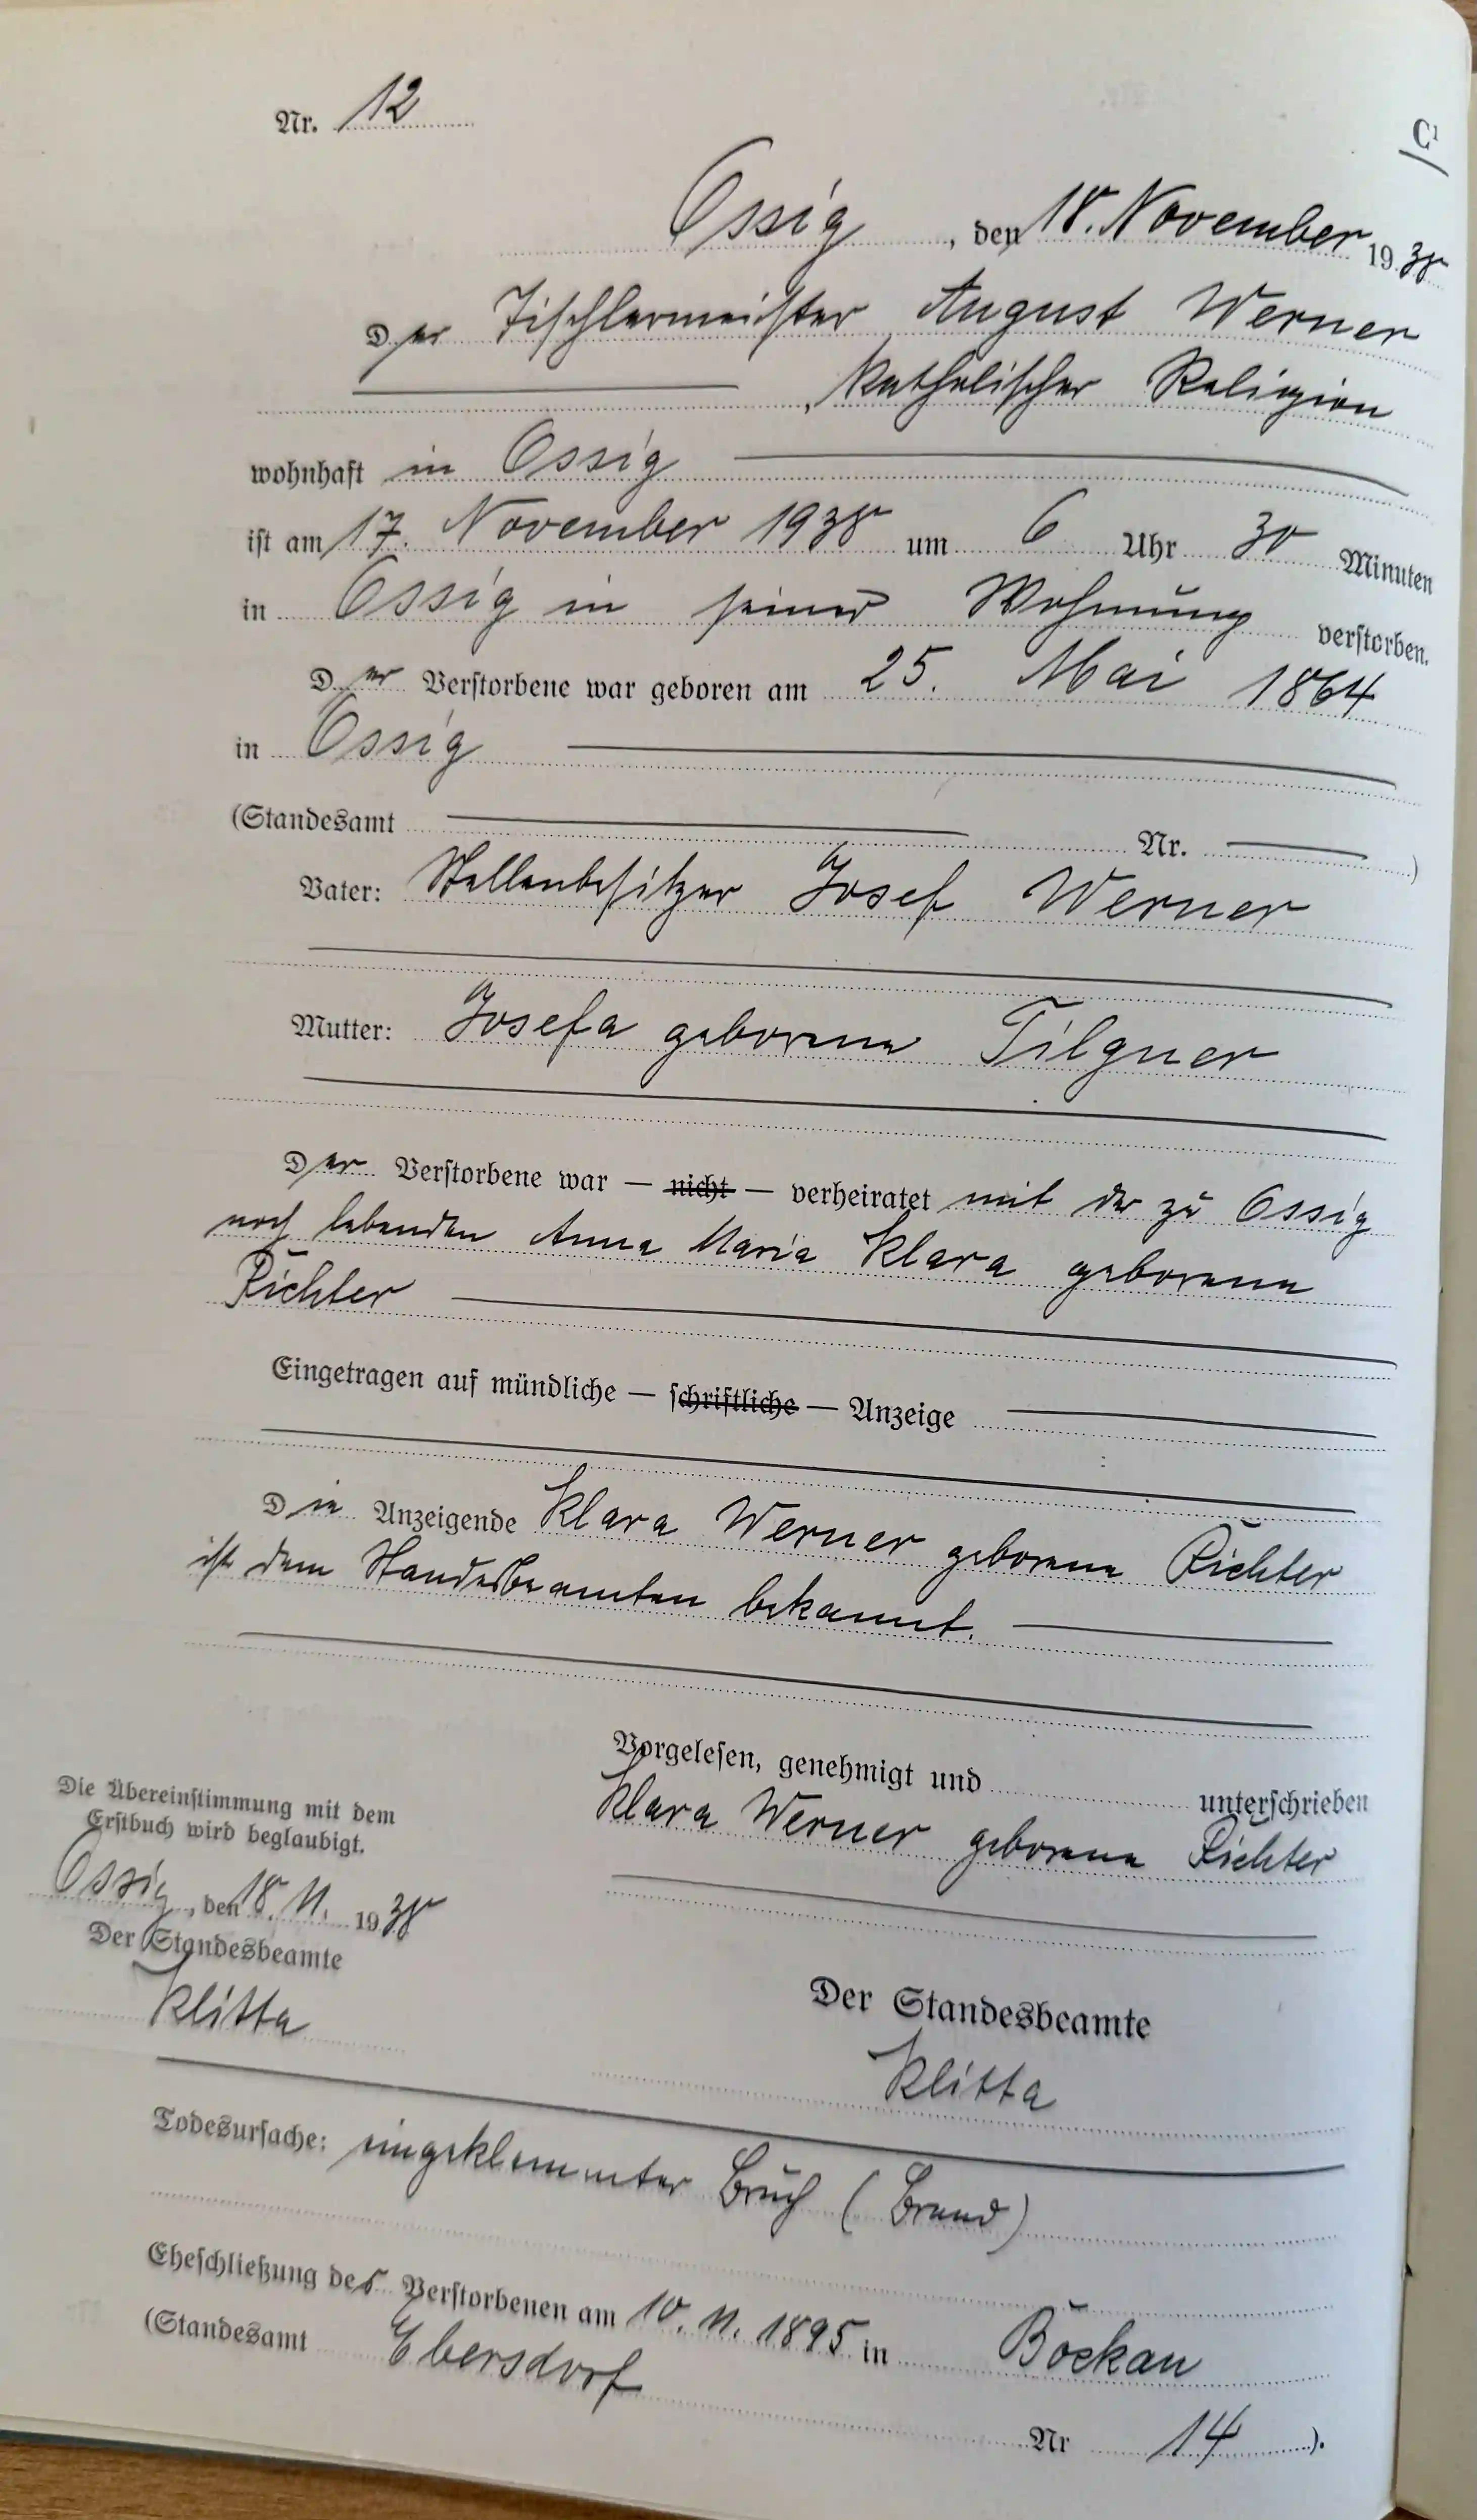 C¹
Nr. 12
Ossig, den 18. November 1938
Der Tischlermeister August Werner
, katholischer Religion
wohnhaft in Ossig
ist am 17. November 1938 um 6 Uhr 30 Minuten
in Ossig in seiner Wohnung verstorben.
Der Verstorbene war geboren am 25. Mai 1864
in Ossig
(Standesamt Nr. )
Vater: Stellenbesitzer Josef Werner
Mutter: Josefa geborene Tilgner
Der Verstorbene war — nicht — verheiratet mit der zu Ossig
noch lebenden Anna Maria Klara geborene
Richter
Eingetragen auf mündliche — schriftliche — Anzeige
Die Anzeigende Klara Werner geborene Richter
ist dem Standesbeamten bekannt.
Vorgelesen, genehmigt und unterschrieben
Klara Werner geborene Richter
Die Übereinstimmung mit dem
Erstbuch wird beglaubigt.
Ossig, den 18. 11. 1938
Der Standesbeamte
Klitta
Der Standesbeamte
Klitta
Todesursache: eingeklemmter Bruch (Brand)
Eheschließung des Verstorbenen am 10. 11. 1895 in Böckau
(Standesamt Ebersdorf
Nr 14 ).